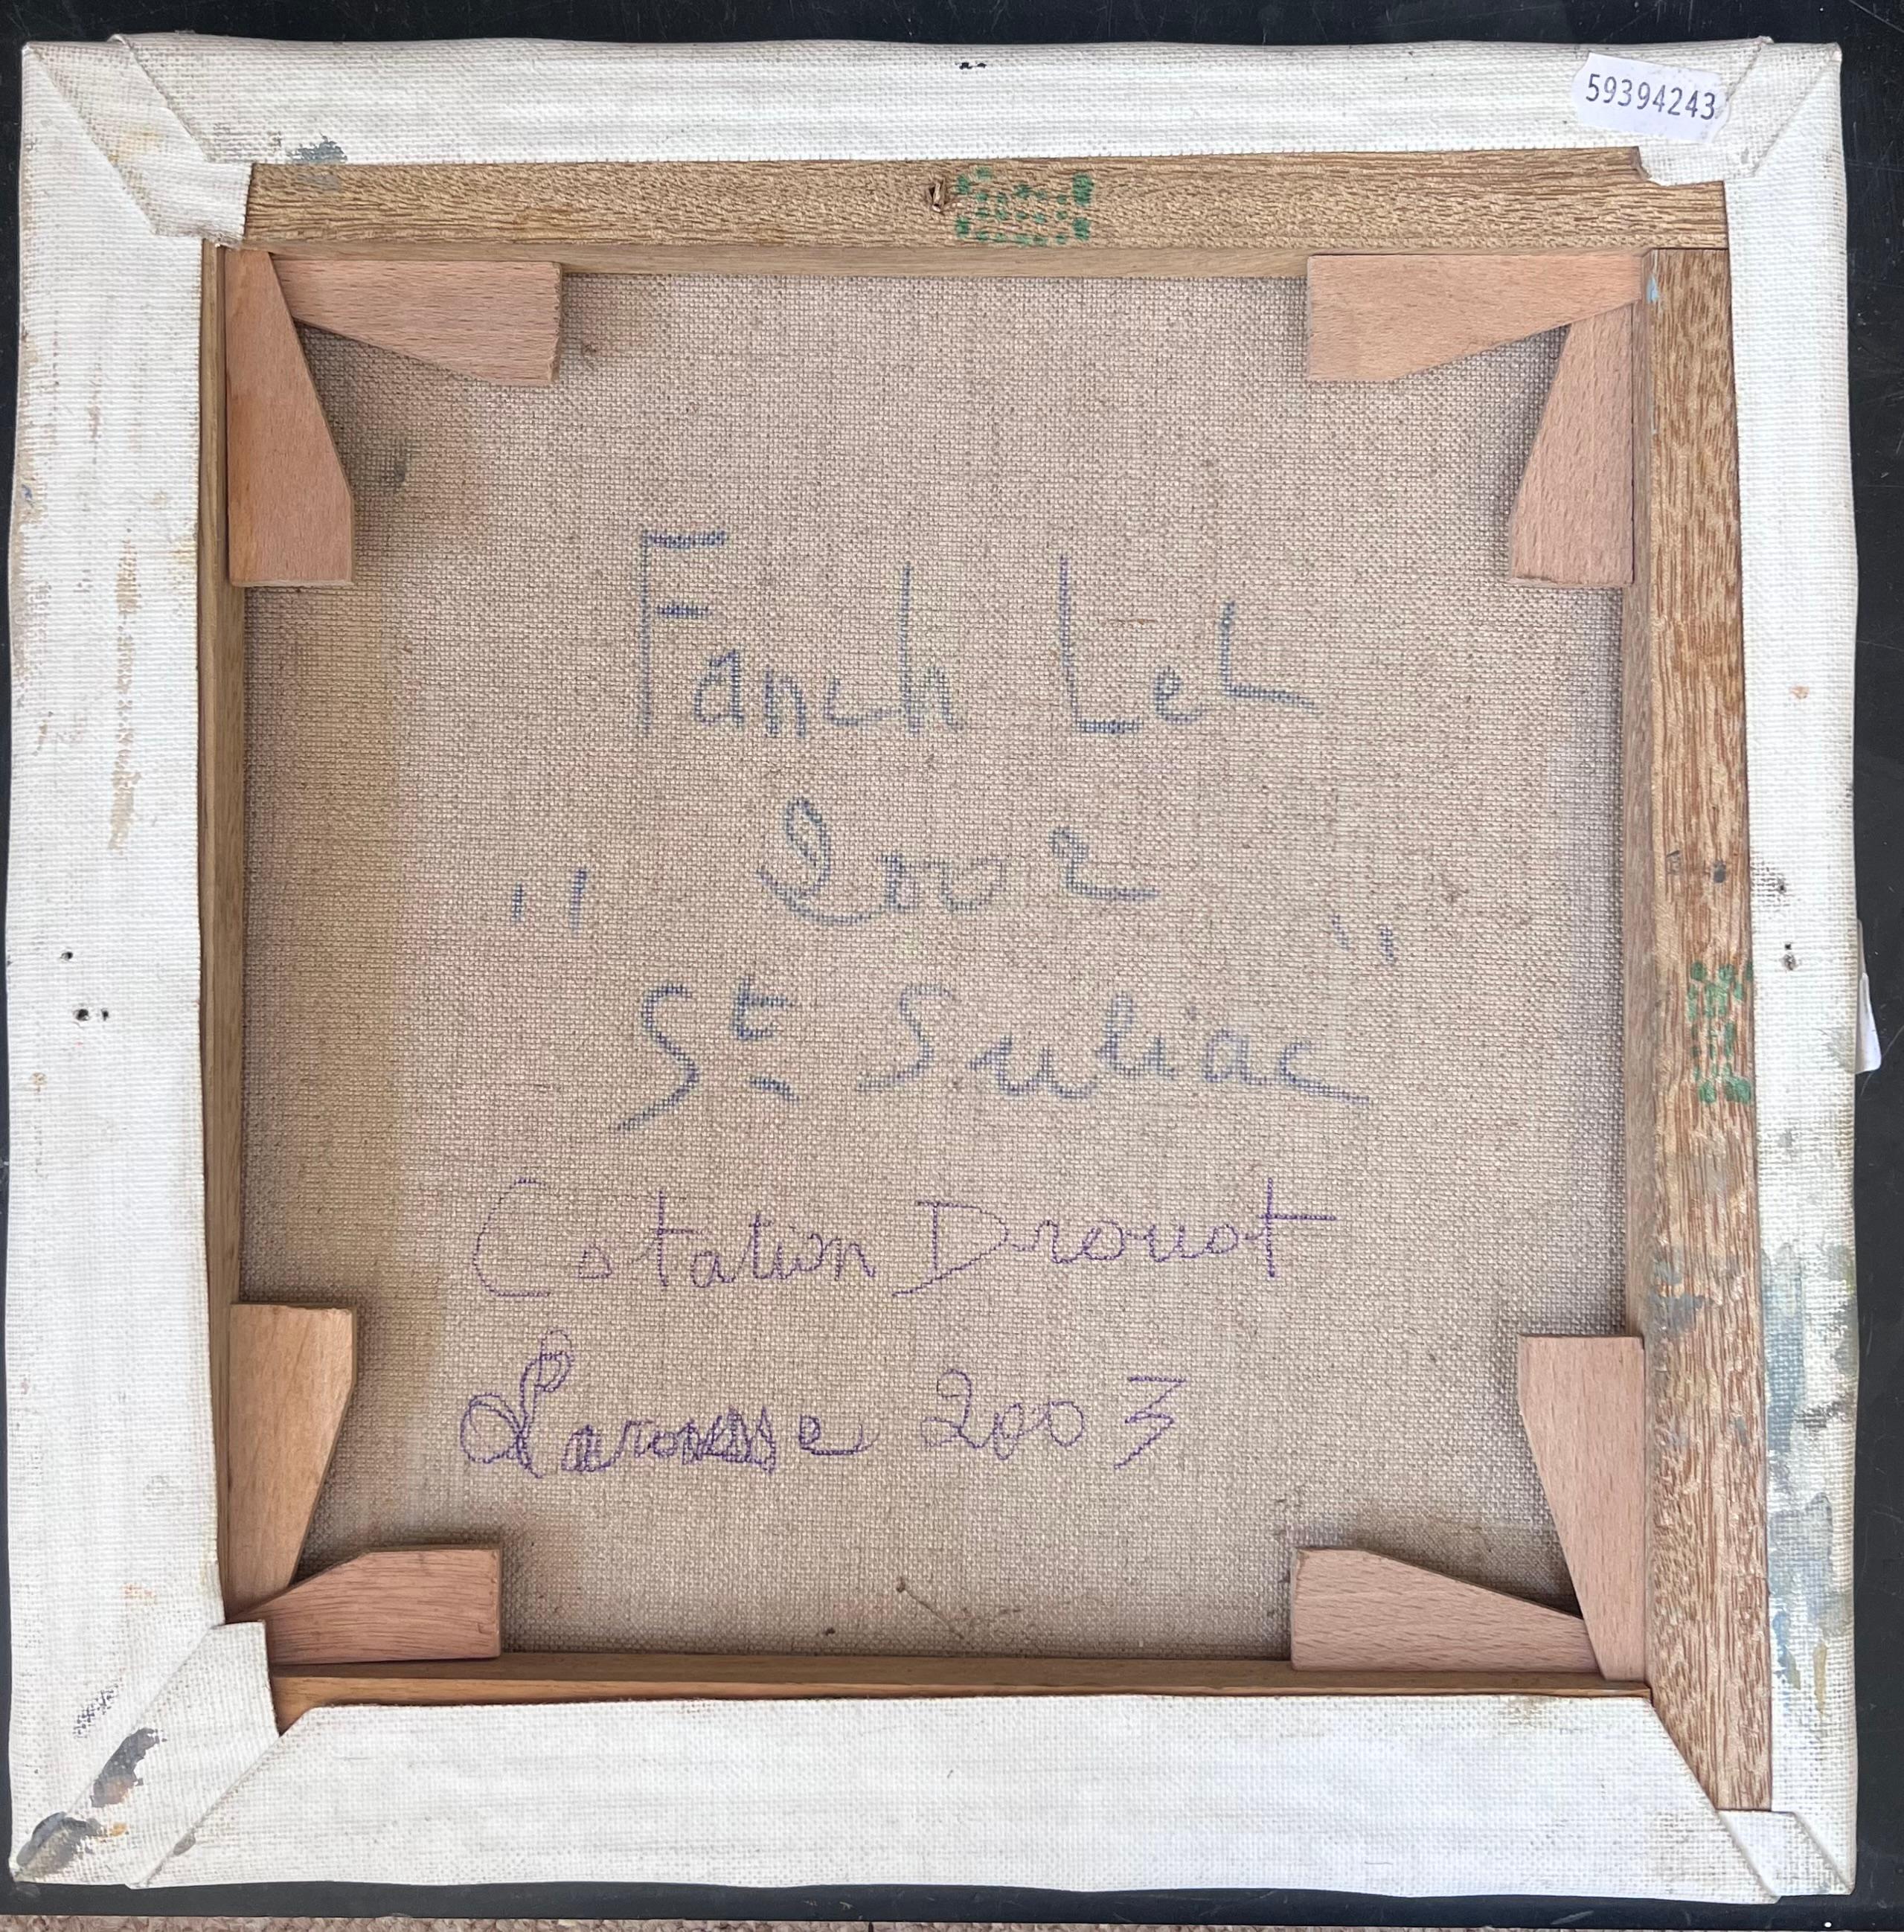 59394243
Fanch Lel
2002
" "
St Suliac
Cotation Drouot
Larousse 2003